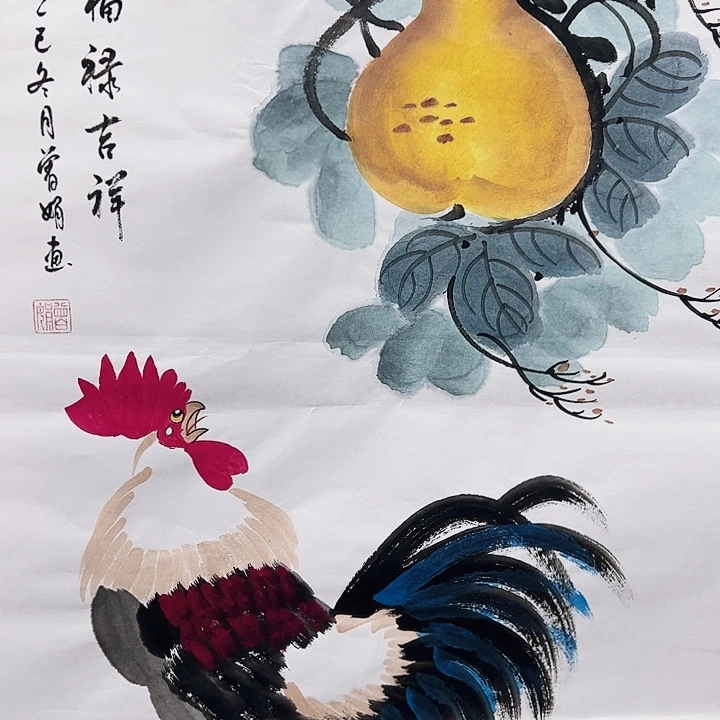 福禄吉祥
乙巳冬月曾娟画
曾娟